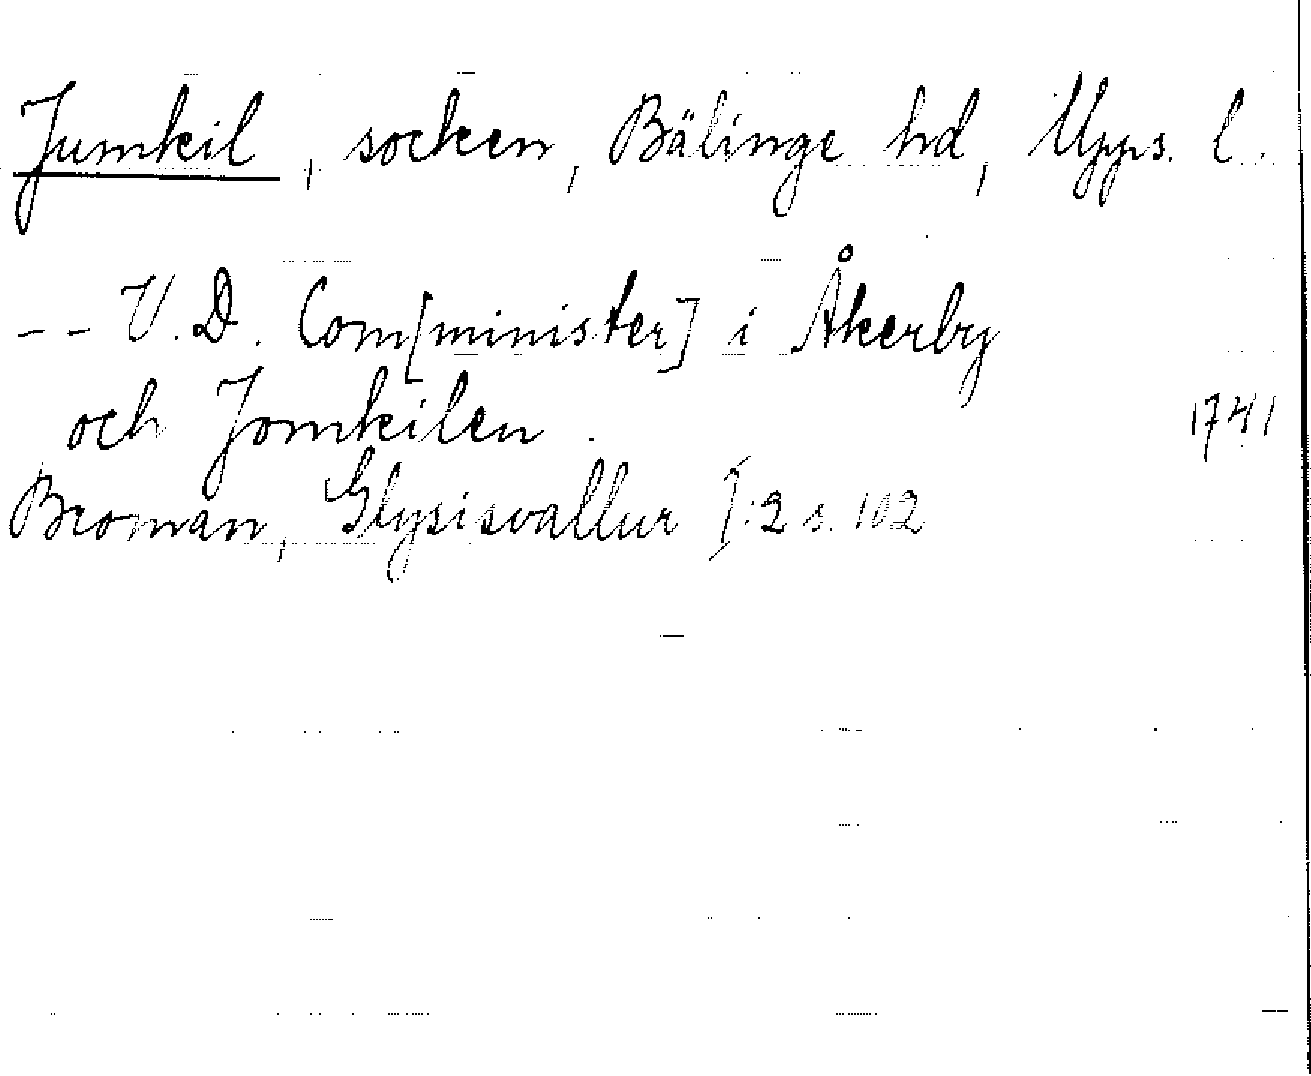 Jumkil, socken, Bälinge hd, Upps. l.
-- V.D. Com[minister] i Åkerby
och Jomkilen. 1741
Broman, Glysisvallur I:2 s. 102